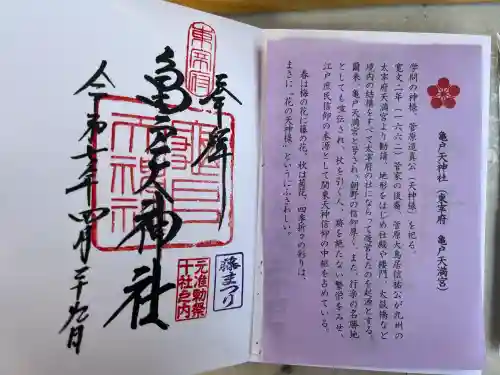 奉拝
亀戸天神社
令和七年四月二十九日
東宰府
亀戸
天神社
元准勅祭
十社之内
藤まつり
亀戸天神社(東宰府 亀戸天満宮)
学問の神様、菅原道真公(天神様)を祀る。
寛文二年(一六六二)菅家の後裔、菅原大鳥居信祐公が九州の
太宰府天満宮より勧請、地形をはじめ社殿や楼門、太鼓橋など
境内の結構をすべて太宰府の社にならって造営したのを起源とする。
爾来、亀戸天満宮と号され、朝野の信仰厚く、また、行楽の名勝地
としても喧伝され、杖を引く人、跡を絶たない繁栄をみせ、
江戸庶民信仰の本源として関東天神信仰の中枢を占めている。
春は梅の花に藤の花、秋は菊花、四季折々の彩りは、
まさに"花の天神様"というにふさわしい。